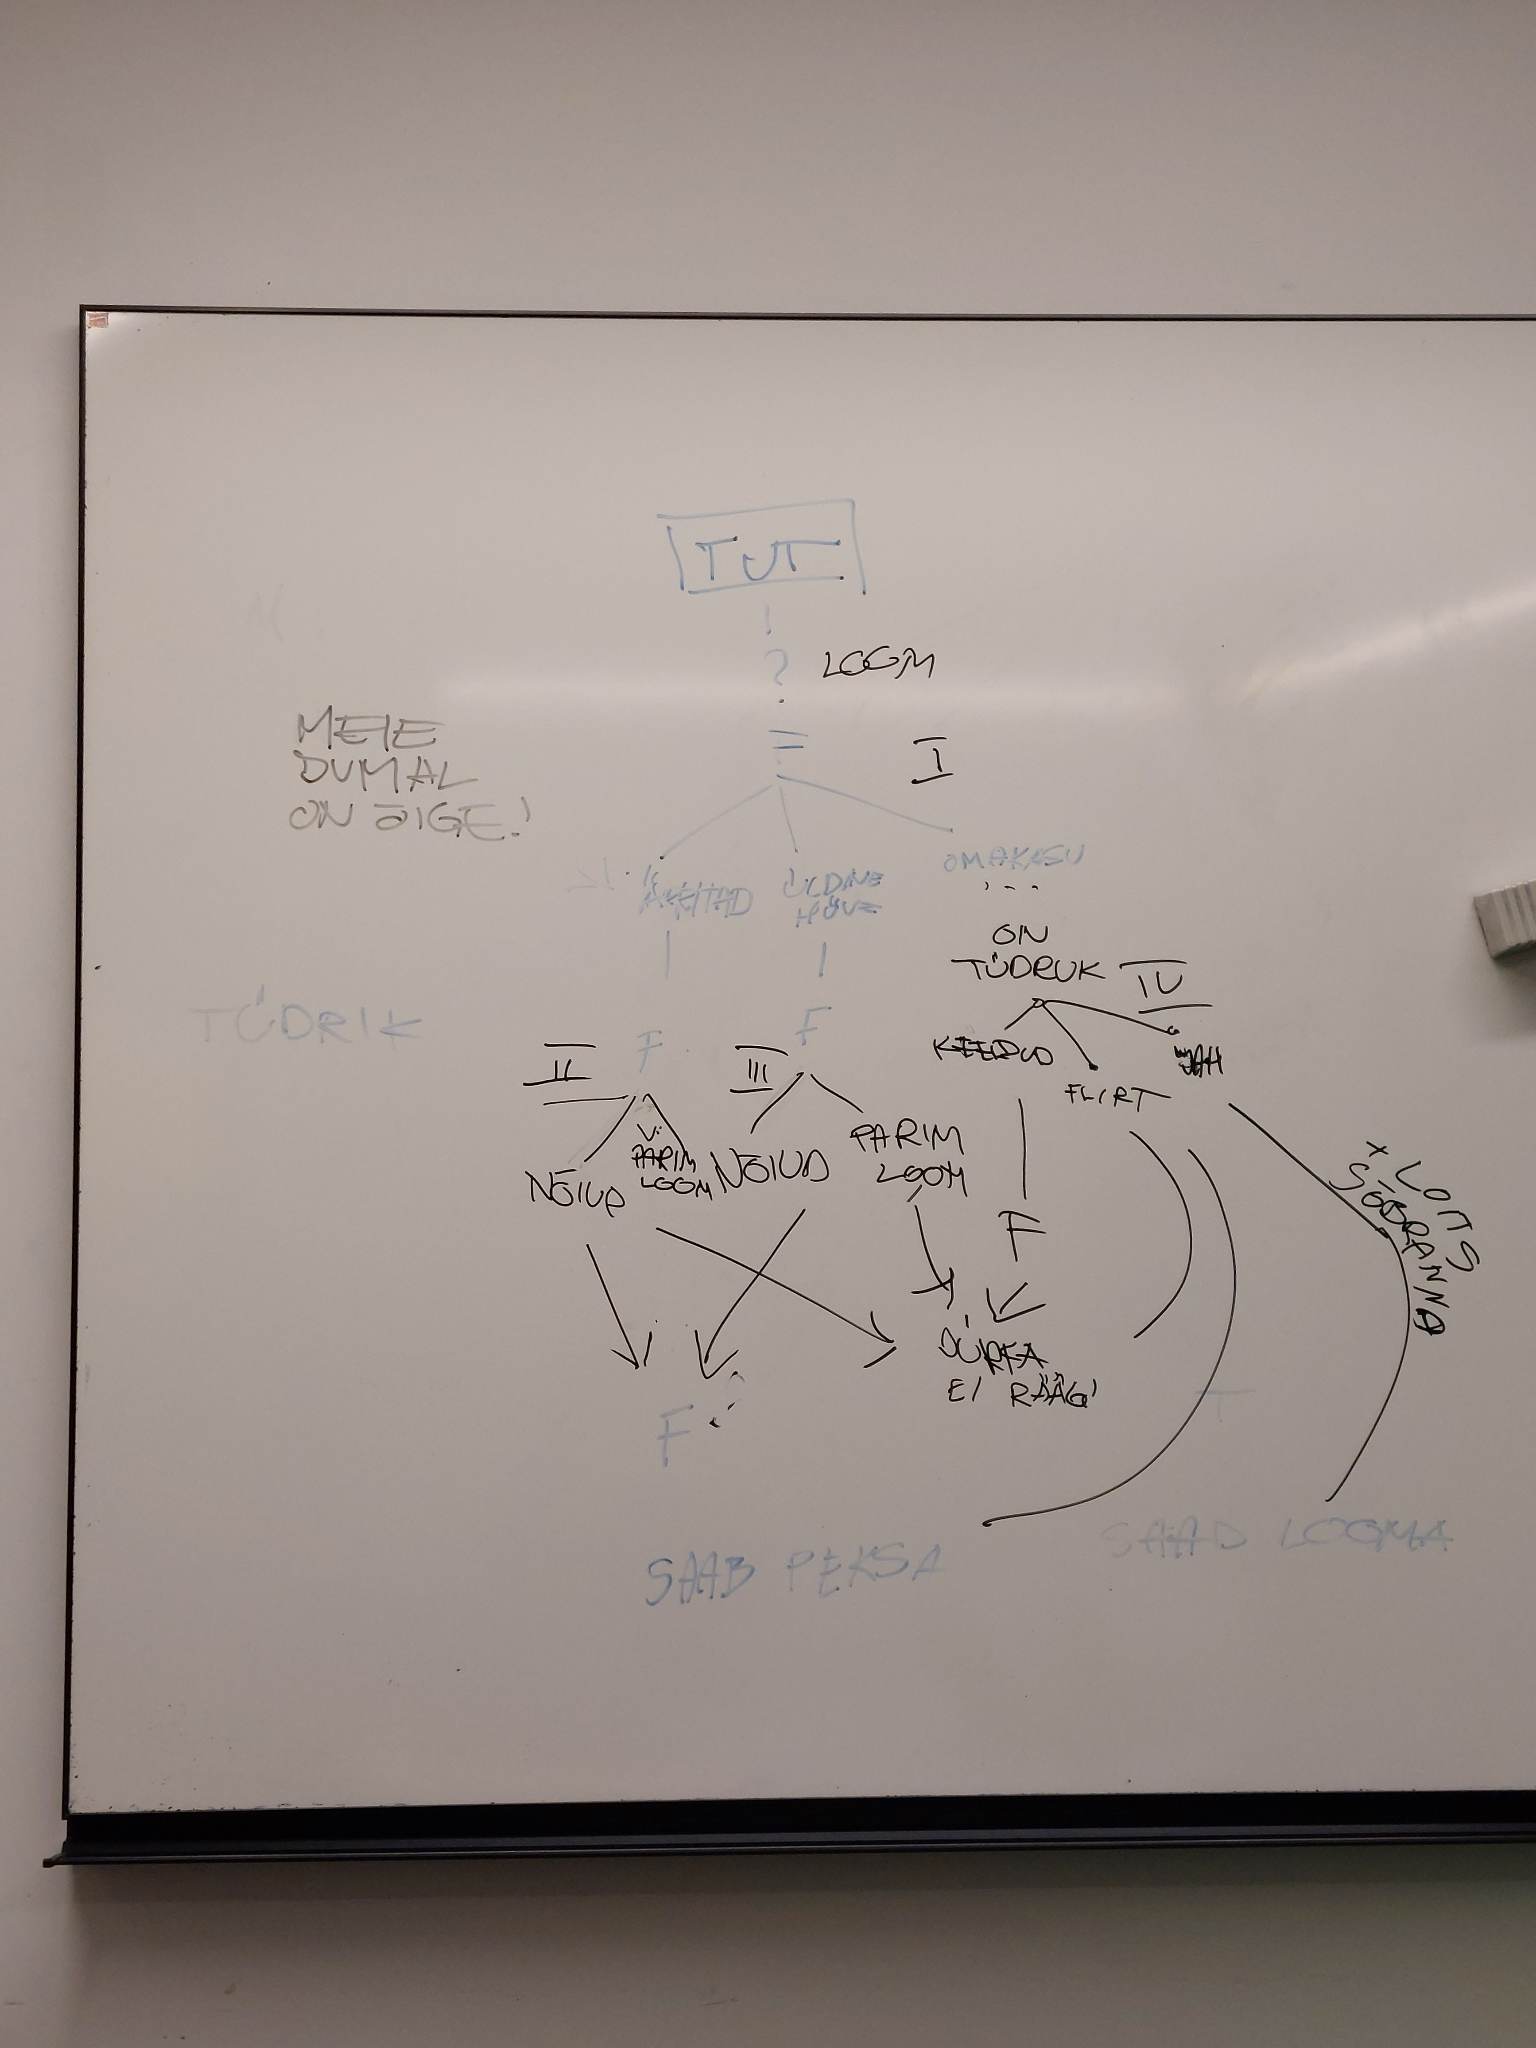 TUT
?
LOOM
=
I
MEIE
DUMAL
ON ÕIGE!
ÄHVITAD
ÜLDINE
HÜVE
OMAKASU
ON
TÜDRUK
IV
TÜDRIK
F
F
II
III
KEELDUD
FLIRT
JAH
NÕIUD
V:
PARIM
LOOM
NÕIUD
PARIM
LOOM
+ LOITS
SÕBRANNA
F
DÜRFA
EI RÄÄGI
F
T
SAAB PEKSA
SAAD LOOMA